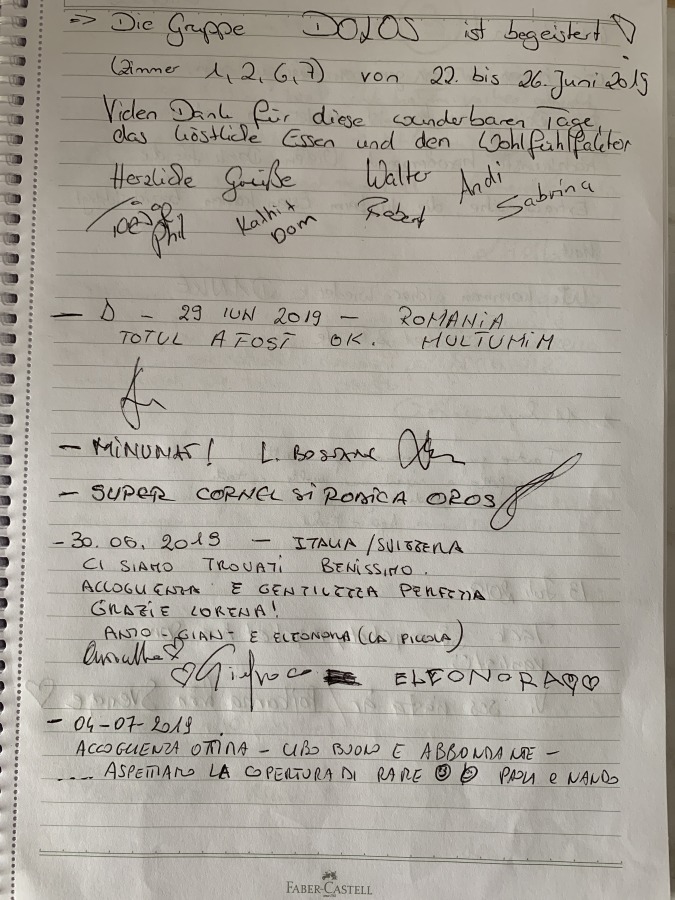 => Die Gruppe DOLOS ist begeistert!
(Zimmer 1, 2, 6, 7) von 22. bis 26. Juni 2019
Vielen Dank für diese wunderbaren Tage,
das köstliche Essen und den Wohlfühlfaktor
Herzliche Grüße Walter Andi Sabrina
Phil Kathi + Dom Robert
— D - 29 IUN 2019 - ROMANIA
TOTUL A FOST OK. MULTUMIM
- MINUNAT! L.
- SUPER CORNEL SI RODICA OROS
- 30.06.2019 - ITALIA/SVIZZERA
CI SIAMO TROVATI BENISSIMO.
ACCOGLIENZA E GENTILEZZA PERFETTA
GRAZIE LORENA!
ANTO - GIANF E ELEONORA (LA PICCOLA)
ELEONORA
- 04-07-2019
ACCOGLIENZA OTTIMA - CIBO BUONO E ABBONDANTE -
.... ASPETTIAMO LA COPERTURA DI RAME PAOLA e NANDO
FABER-CASTELL